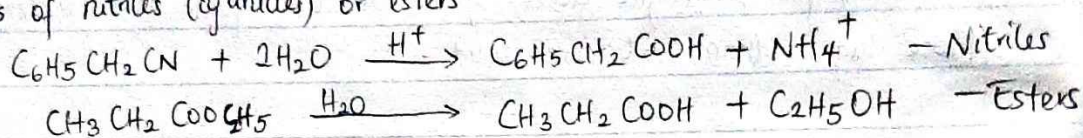 s of nitriles (cyanides) or esters
C6H5 CH2 CN + 2H2O H+ → C6H5 CH2 COOH + NH4+ – Nitriles
CH3 CH2 COO C2H5 H2O → CH3 CH2 COOH + C2H5 OH – Esters